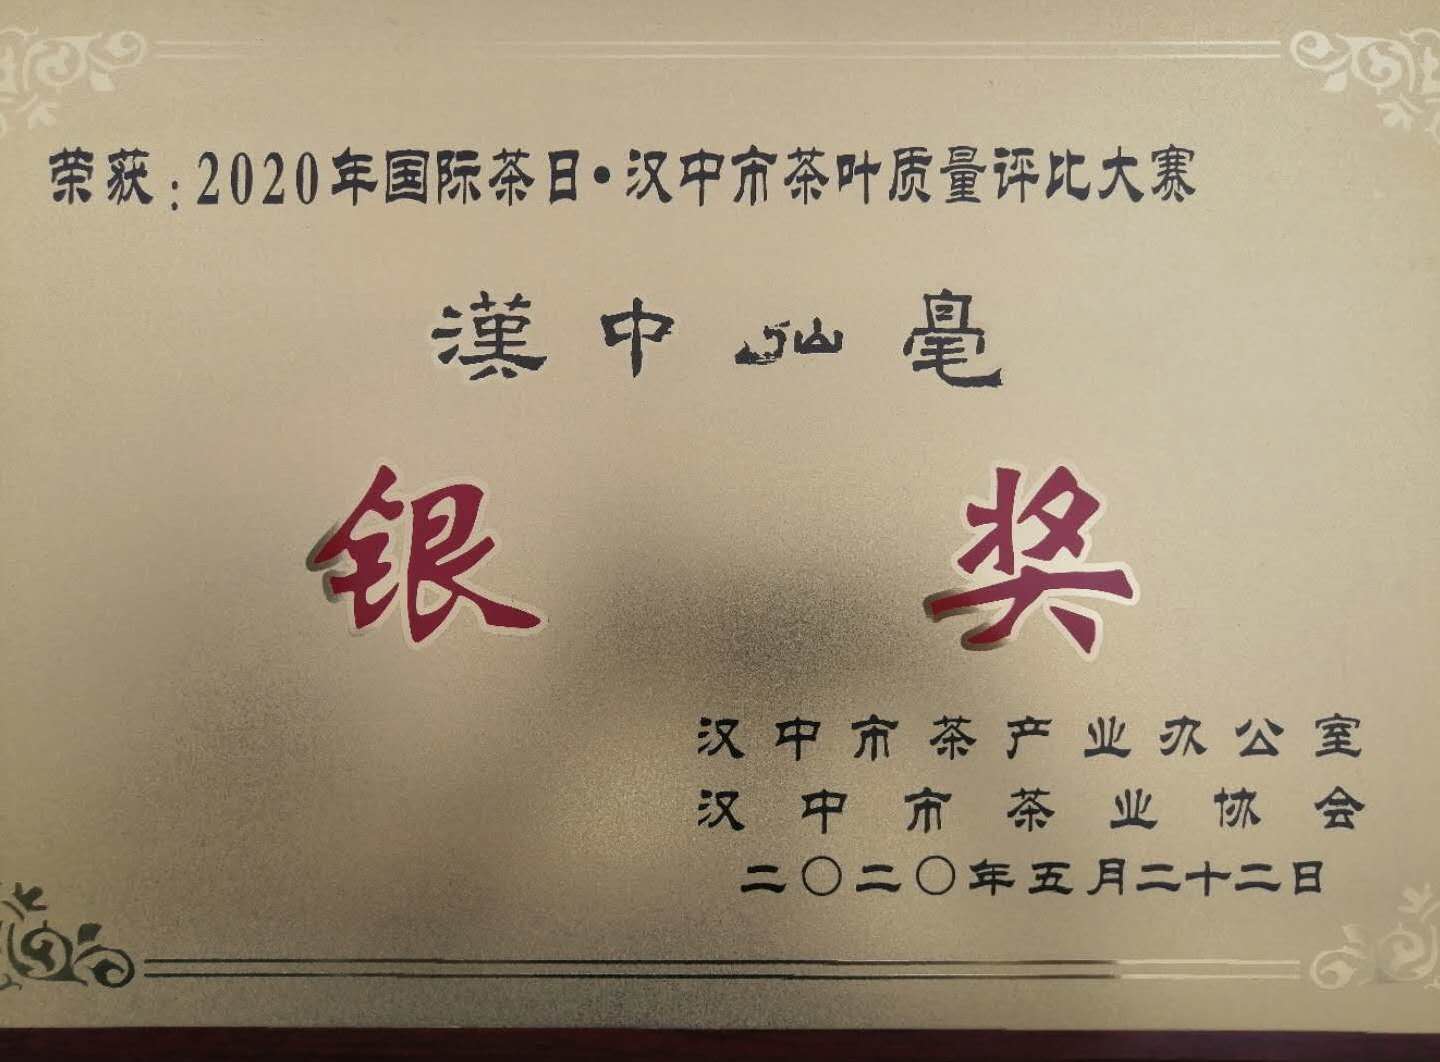 荣获：2020年国际茶日·汉中市茶叶质量评比大赛
漢中仙毫
银奖
汉中市茶产业办公室
汉中市茶业协会
二〇二〇年五月二十二日